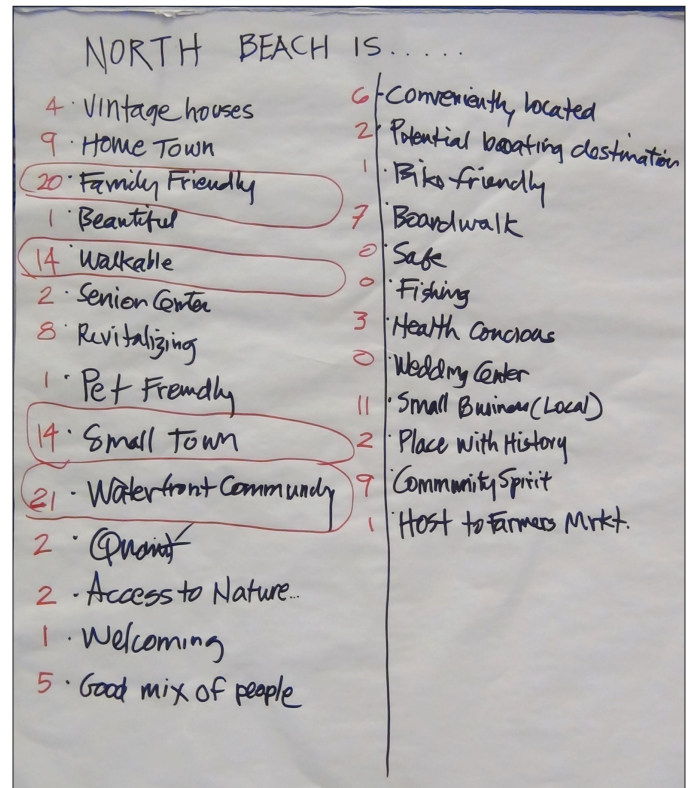 NORTH BEACH IS.....
4 · Vintage houses
9 · Home Town
20 · Family Friendly
1 · Beautiful
14 · Walkable
2 · Senior Center
8 · Revitalizing
1 · Pet Friendly
14 · Small Town
21 · Waterfront Community
2 · Quaint
2 · Access to Nature...
1 · Welcoming
5 · Good mix of people
6 · Conveniently located
2 · Potential boating destination
1 · Bike friendly
7 · Boardwalk
0 · Safe
0 · Fishing
3 · Health Concious
0 · Wedding Center
11 · Small Business (Local)
2 · Place with History
9 · Community Spirit
1 · Host to Farmers Mrkt.